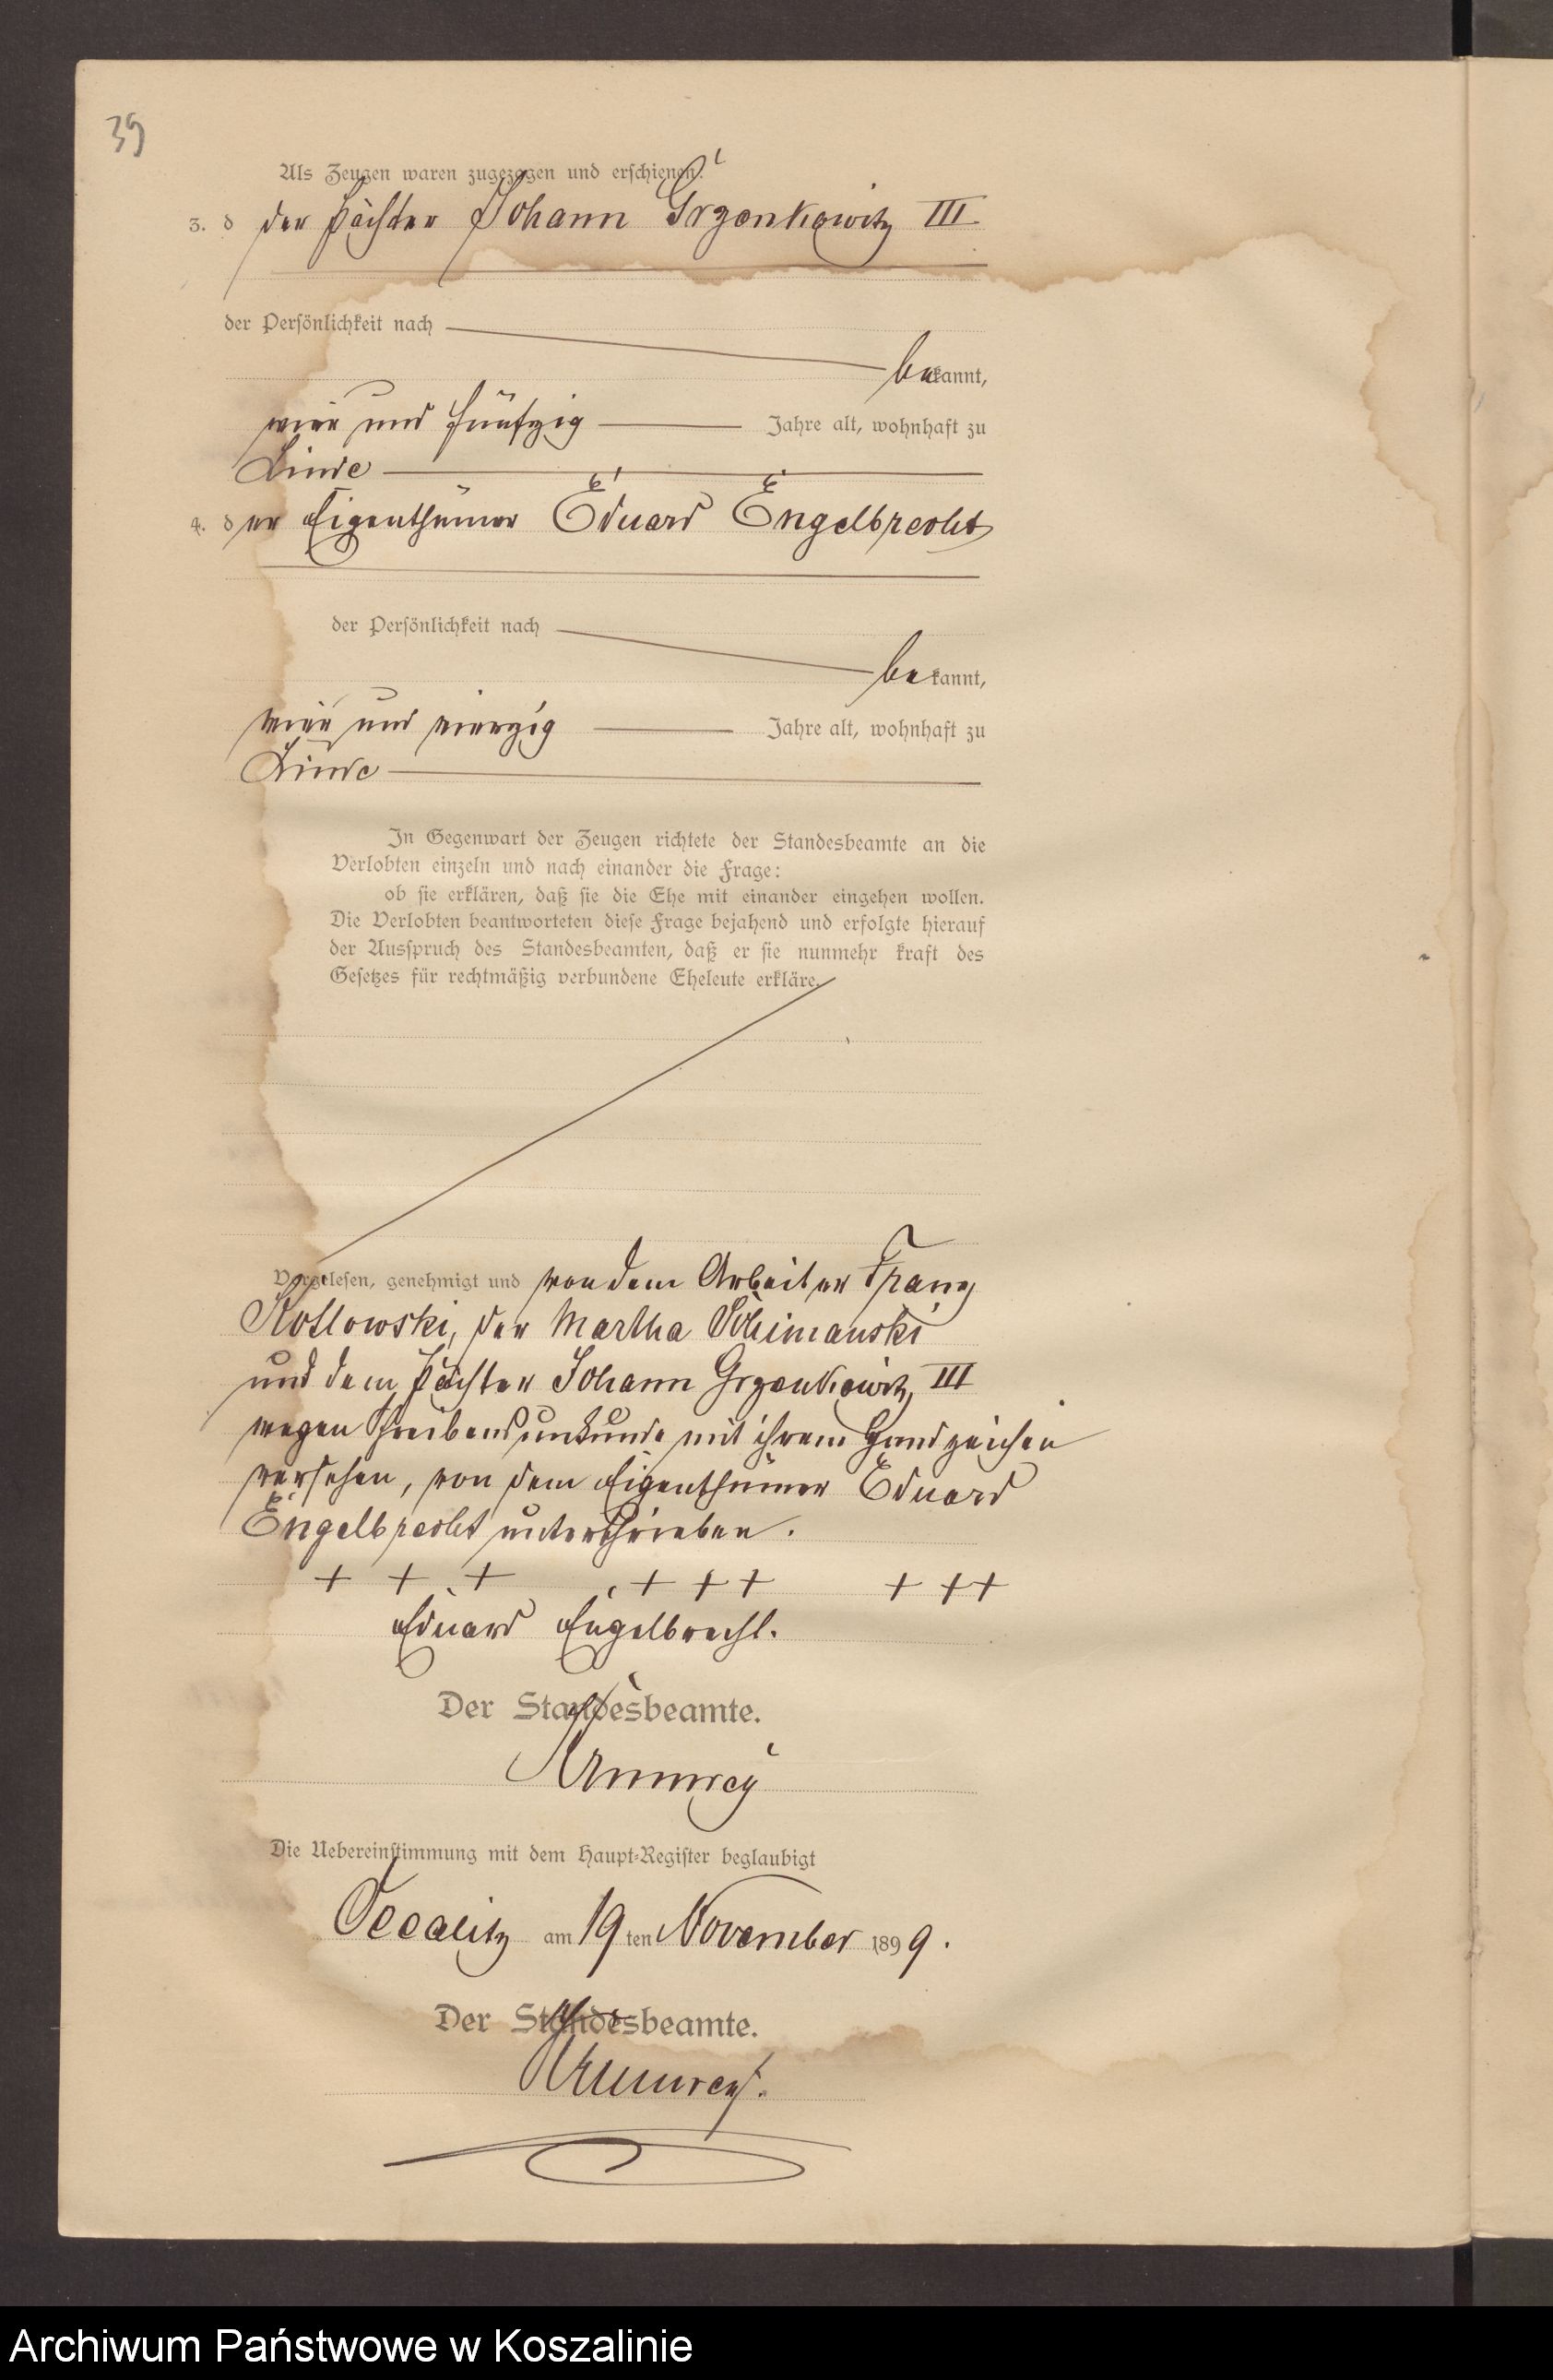 39
Als Zeugen waren zugezogen und erschienen:
3. d der Pächter Johann Grzenkowitz III
der Persönlichkeit nach
bekannt,
vier und fünfzig Jahre alt, wohnhaft zu
Linde
4. der Eigenthümer Eduard Engelbrecht
der Persönlichkeit nach
bekannt,
vier und vierzig Jahre alt, wohnhaft zu
Linde
In Gegenwart der Zeugen richtete der Standesbeamte an die
Verlobten einzeln und nach einander die Frage:
ob sie erklären, daß sie die Ehe mit einander eingehen wollen.
Die Verlobten beantworteten diese Frage bejahend und erfolgte hierauf
der Ausspruch des Standesbeamten, daß er sie nunmehr kraft des
Gesetzes für rechtmäßig verbundene Eheleute erkläre.
Vorgelesen, genehmigt und von dem Arbeiter Franz
Kotlowski, der Martha Schimanski
und dem Pächter Johann Grzenkowitz III
wegen Schreibensunkunde mit ihrem Handzeichen
versehen, von dem Eigenthümer Eduard
Engelbrecht unterschrieben.
+ + + + + + + + +
Eduard Engelbrecht.
Der Standesbeamte.
Die Uebereinstimmung mit dem Haupt-Register beglaubigt
am 19 ten November 1899.
Der Standesbeamte.
Archiwum Państwowe w Koszalinie